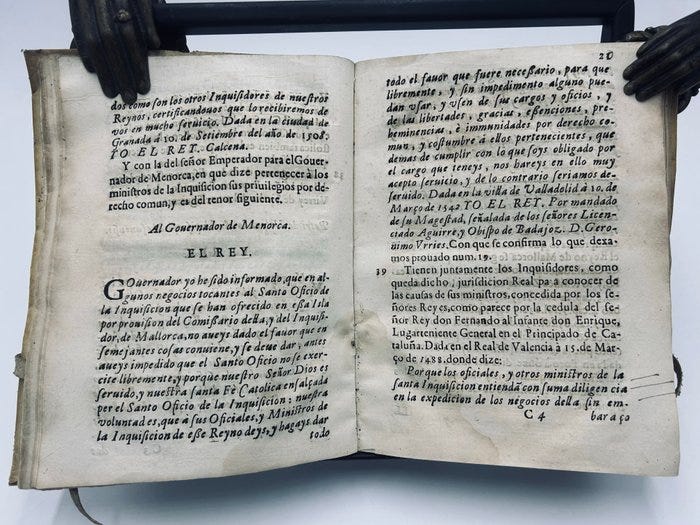 dos como son los otros Inquisidores de nuestros
Reynos, certificandouos que lo recibiremos de
vos en mucho seruicio. Dada en la ciudad de
Granada à 10. de Setiembre del año de 1508.
YO EL REY. Calcena.
Y con la del señor Emperador para el Gouer-
nador de Menorca, en que dize pertenecer à los
ministros de la Inquisicion sus priuilegios por de-
recho comun, y es del tenor siguiente.
Al Gouernador de Menorca.
EL REY.
GOuernador yo he sido informado, que en al-
gunos negocios tocantes al Santo Oficio de
la Inquisicion que se han ofrecido en essa Isla
por prouision del Comissario della, y del Inquisi-
dor, de Mallorca, no aueys dado el fauor que en
semejantes cosas conuiene, y se deue dar, antes
aueys impedido que el Santo Oficio no se exer-
cite libremente, y porque nuestro Señor Dios es
seruido, y nuestra santa Fè Catolica ensalçada
por el Santo Oficio de la Inquisicion: nuestra
voluntad es, que a sus Oficiales, y Ministros de
la Inquisicion de esse Reyno deys, y hagays dar
todo
20
todo el fauor que fuere necessario, para que
libremente, y sin impedimento alguno pue-
dan vsar, y vsen de sus cargos y oficios, y
de las libertades, gracias, essenciones, pre-
heminencias, è immunidades por derecho co-
mun, y costumbre à ellos pertenecientes, que
demas de cumplir con lo que soys obligado por
el cargo que teneys, nos hareys en ello muy
acepto seruicio, y de lo contrario seriamos de-
seruido. Dada en la villa de Valladolid à 10. de
Março de 1542 YO EL REY. Por mandado
de su Magestad, señalada de los señores Licen-
ciado Aguirre, y Obispo de Badajoz. D. Gero-
nimo Vrries. Con que se confirma lo que dexa-
mos prouado num. 19.
39 Tienen juntamente los Inquisidores, como
queda dicho, jurisdicion Real pa a conocer de
las causas de sus ministros, concedida por los se-
ñores Reyes, como parece por la cedula del se-
ñor Rey don Fernando al Infante don Enrique,
Lugarteniente General en el Principado de Ca-
taluña. Dada en el Real de Valencia à 15. de Mar-
ço de 1488. donde dize:
Porque los oficiales, y otros ministros de la
santa Inquisicion entienda con suma diligencia
en la expedicion de los negocios della sin em-
C 4 baraço